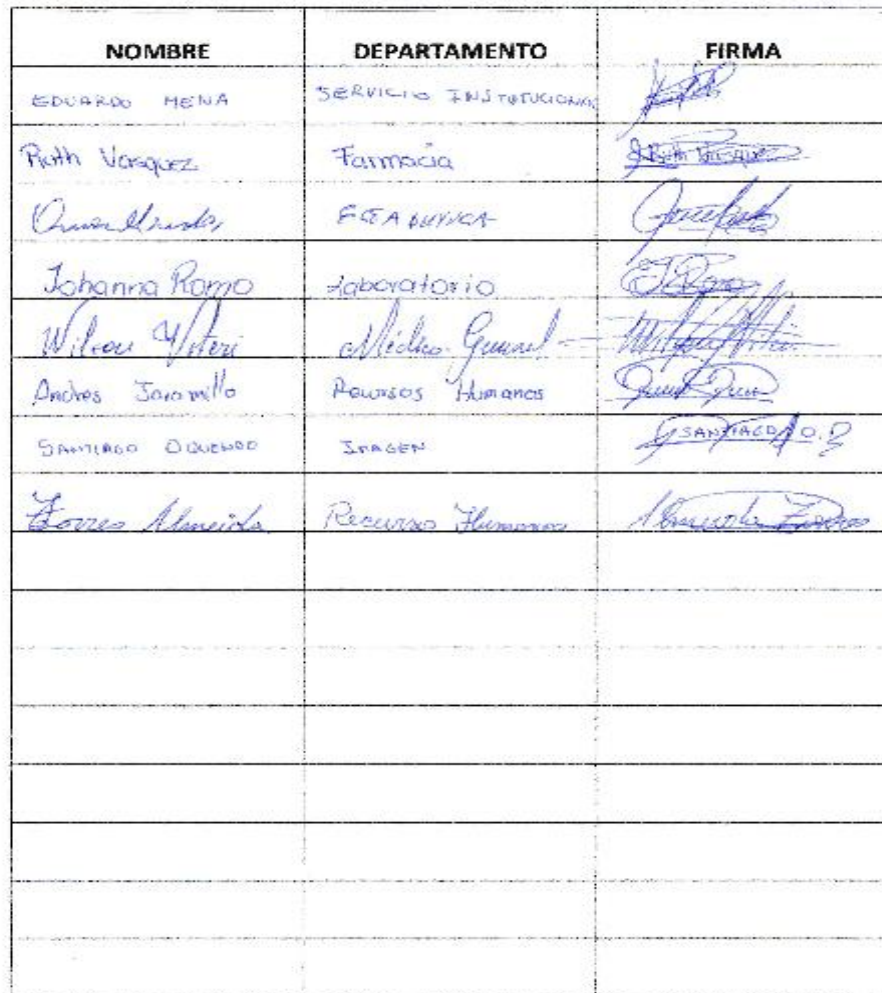 NOMBRE DEPARTAMENTO FIRMA
EDUARDO MENA SERVICIO INSTITUCIONAL
Ruth Vasquez Farmacia Ruth Vasquez
Johanna Ramo Laboratorio
Wilson Viteri Médico General Wilson Viteri
Andres Jaramillo Recursos Humanos
SANTIAGO OQUENDO IMAGEN SANTIAGO O.
Torres Almeida Recursos Humanos Almeida Torres